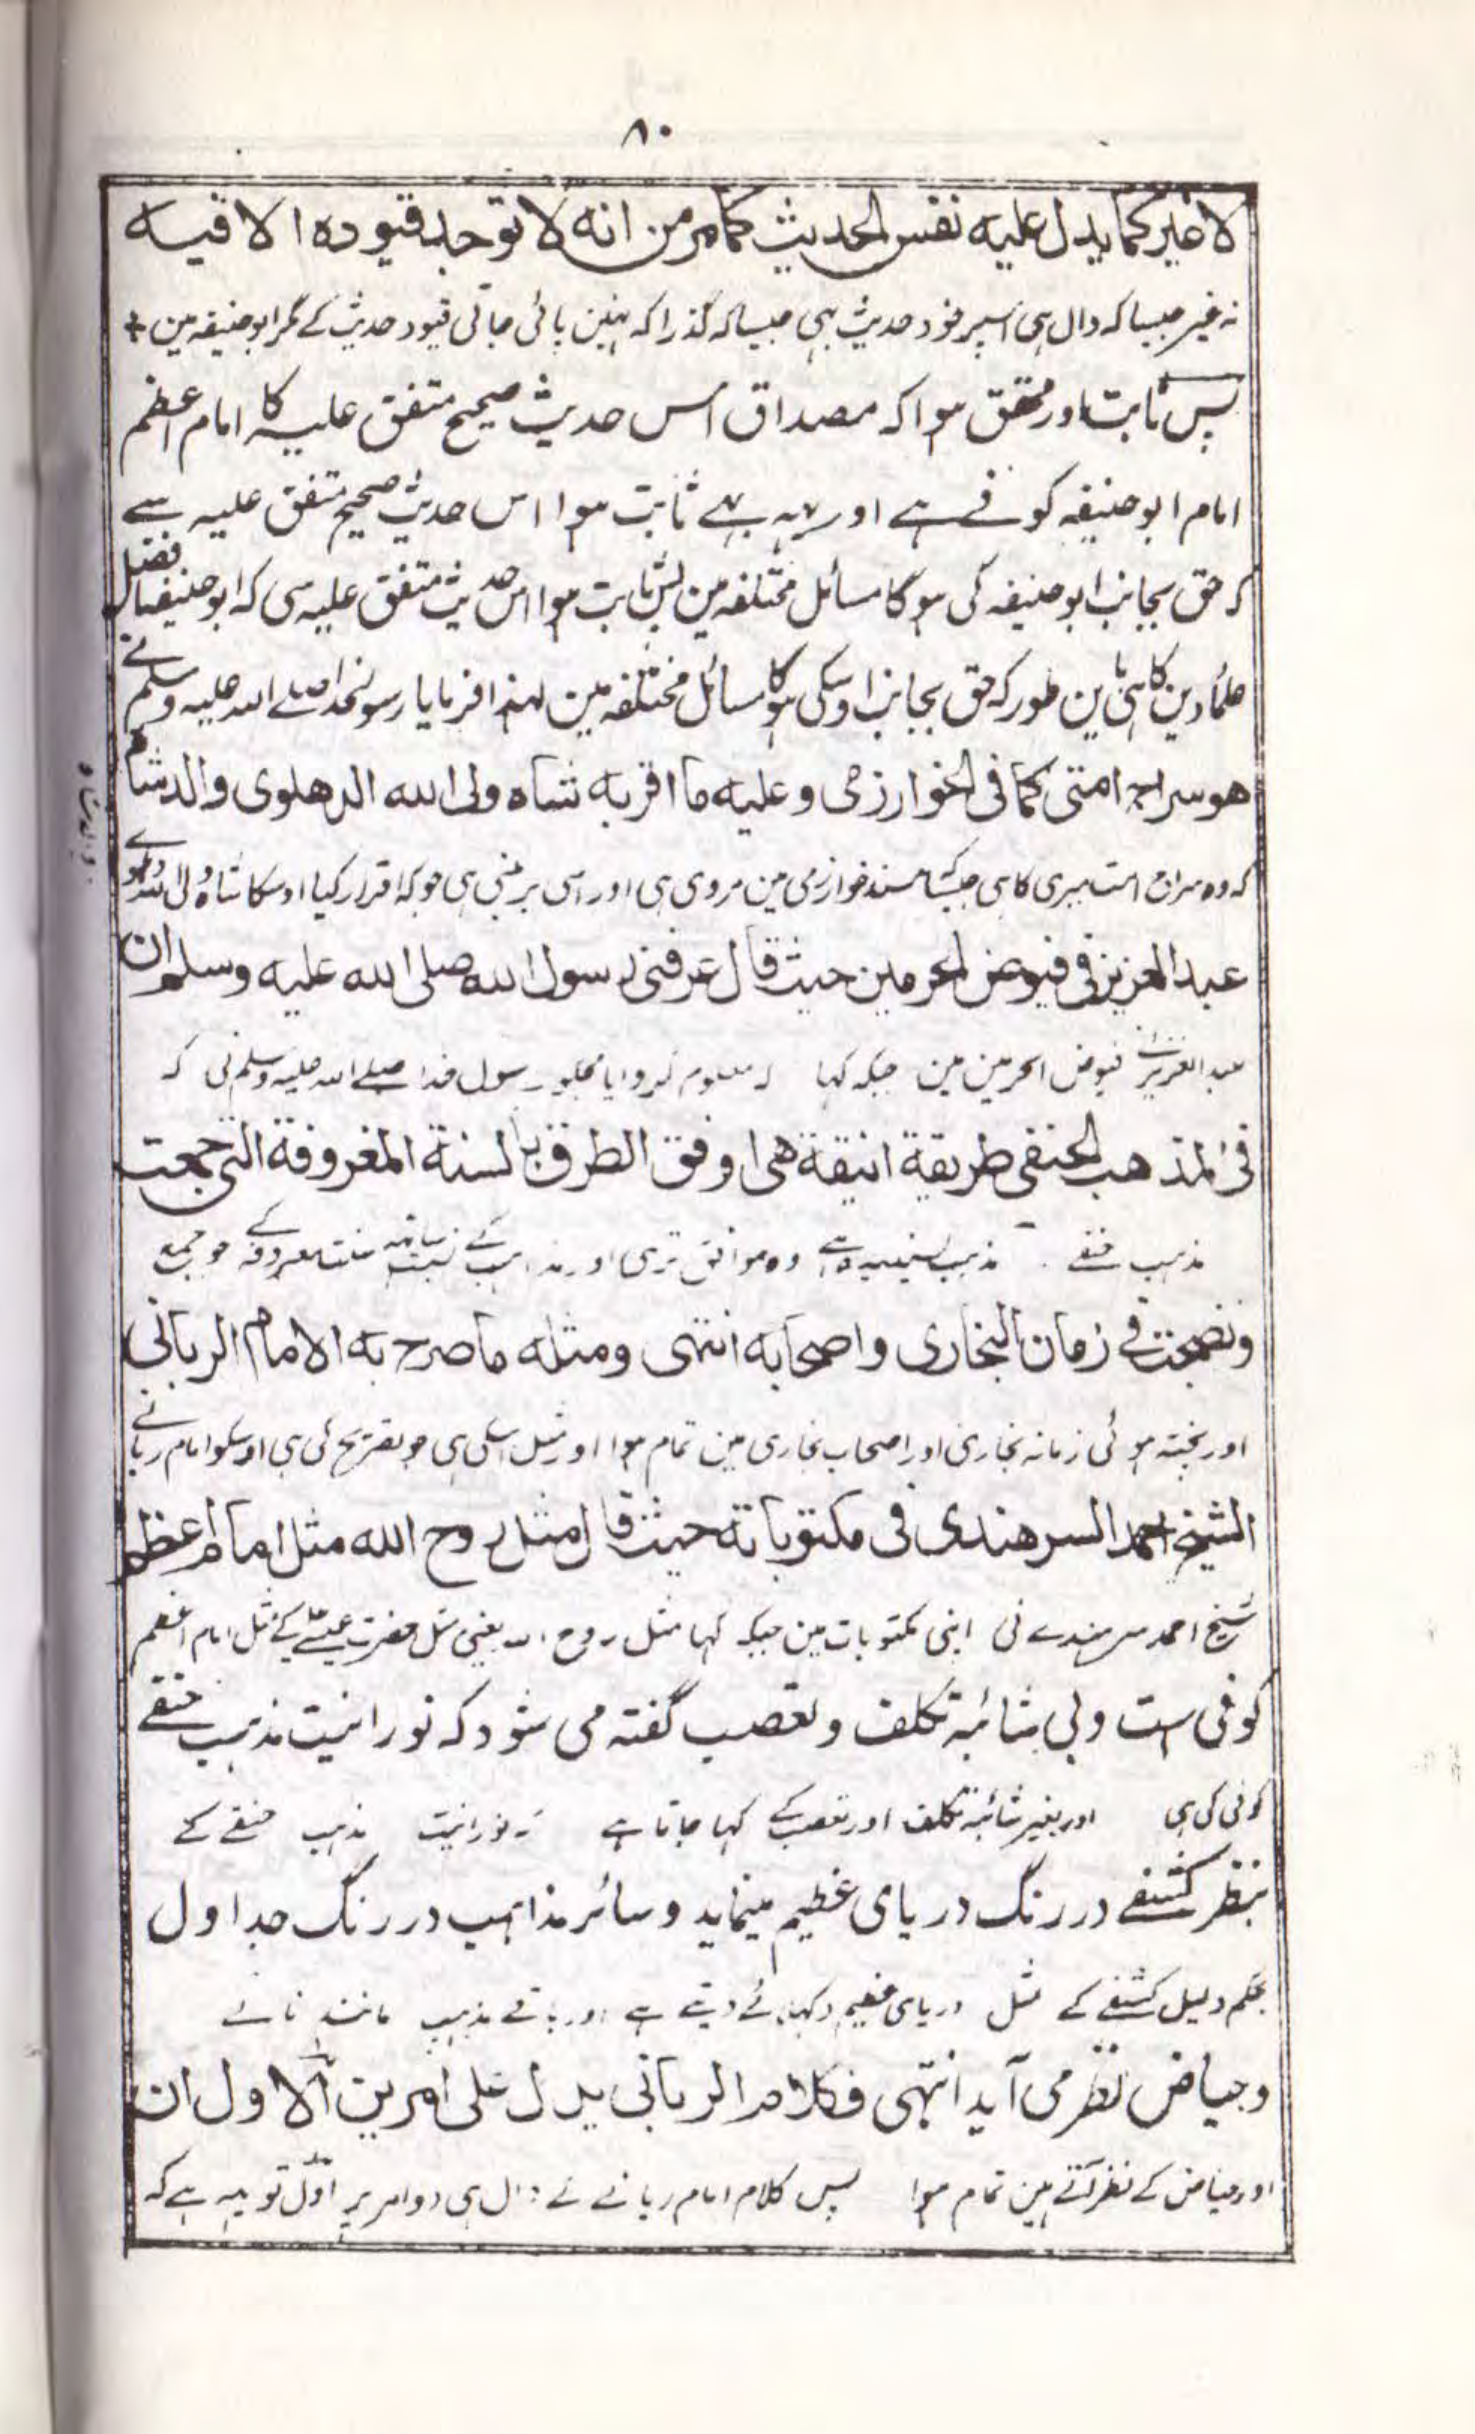 ۸۰
لا غير كما يدل عليه نفس الحديث كما مر من انه لا توجد قيوده الا فيه
نہ غیر جیسا کہ دال ہی اسپر خود حدیث بہی جیسا کہ گذرا کہ نہین پائی جاتی قیود حدیث کے مگر ابو حنیفہ مین +
پس ثابت اور محقق ہوا کہ مصداق اس حدیث صحیح متفق علیہ کا امام اعظم
امام ابو حنیفہ کوفے ہے اور یہہ بہے ثابت ہوا اس حدیث صحیح متفق علیہ سے
کہ حق بجانب ابو حنیفہ کی ہوگا مسائل مختلفہ مین پس ثابت ہوا اس حدیث متفق علیہ سی کہ ابو حنیفہ افضل
علماء دین کا ہی باین طور کہ حق بجانب اوسکی ہوگا مسائل مختلفہ مین لہذا فرمایا رسولخدا صلے اللہ علیہ وسلم نے
هو سراج امتى كما فى الخوارزمى وعليه ما اقر به شاه ولى الله الدهلوى والد شاه
کہ وہ سراج امت میری کا ہی جیسا مسند خوارزمی مین مروی ہی اور اسی پر مبنی ہی جو کہ اقرار کیا اوسکا شاہ ولی اللہ
عبد العزيز فى فيوض الحرمين حيث قال عرفنى رسول الله صلى الله عليه وسلم ان
عبد العزیز فیوض الحرمین مین جبکہ کہا کہ معلوم کروایا مجکو رسول خدا صلے اللہ علیہ وسلم نی کہ
فى المذهب الحنفى طريقة انيقة هى اوفق الطرق بالسنة المعروفة التى جمعت
مذہب حنفے مذہب پسندیدہ ہے وہ موافق تر ہی اور مذاہب کے نسبت ساتھ سنت معروفہ کے جو جمع
ونضجت فى زمان البخارى واصحابه انتهى ومثله ما صرح به الامام الربانى
اور پختہ ہوئی زمانہ بخاری اور اصحاب بخاری مین تمام ہوا اور مثل اسکی ہی جو تصریح کی ہی اوسکو امام ربانے
الشيخ احمد السرهندى فى مكتوباته حيث قال مثل روح الله مثل امام اعظم
شیخ احمد سرہندے نی اپنی مکتوبات مین جبکہ کہا مثل روح اللہ یعنی مثل حضرت عیسے کے مثل امام اعظم
کوفی ست وبی شائبہ تکلف وتعصب گفتہ می شود کہ نورانیت مذہب حنفے
کوفی کی ہی اور بغیر شائبہ تکلف اور تعصب کے کہا جاتا ہے کہ نورانیت مذہب حنفے کے
بنظر کشفے در رنگ دریای عظیم مینماید وسائر مذاہب در رنگ جداول
بحکم دلیل کشفے کے مثل دریای عظیم دکہائے دیتے ہے اور باقے مذہب مانند نالے
وحیاض نظر می آید انتہی فكلام الربانى يدل على امرين الاول ان
اور حیاض کے نظر آتے ہین تمام ہوا پس کلام امام ربانے نے دال ہی دو امر پر اوّل تو یہہ ہے کہ